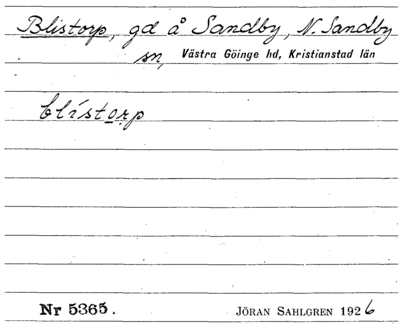 Blistorp, gd å Sandby, N. Sandby
sn, Västra Göinge hd, Kristianstad län
blístorp
Nr 5365. JÖRAN SAHLGREN 1926